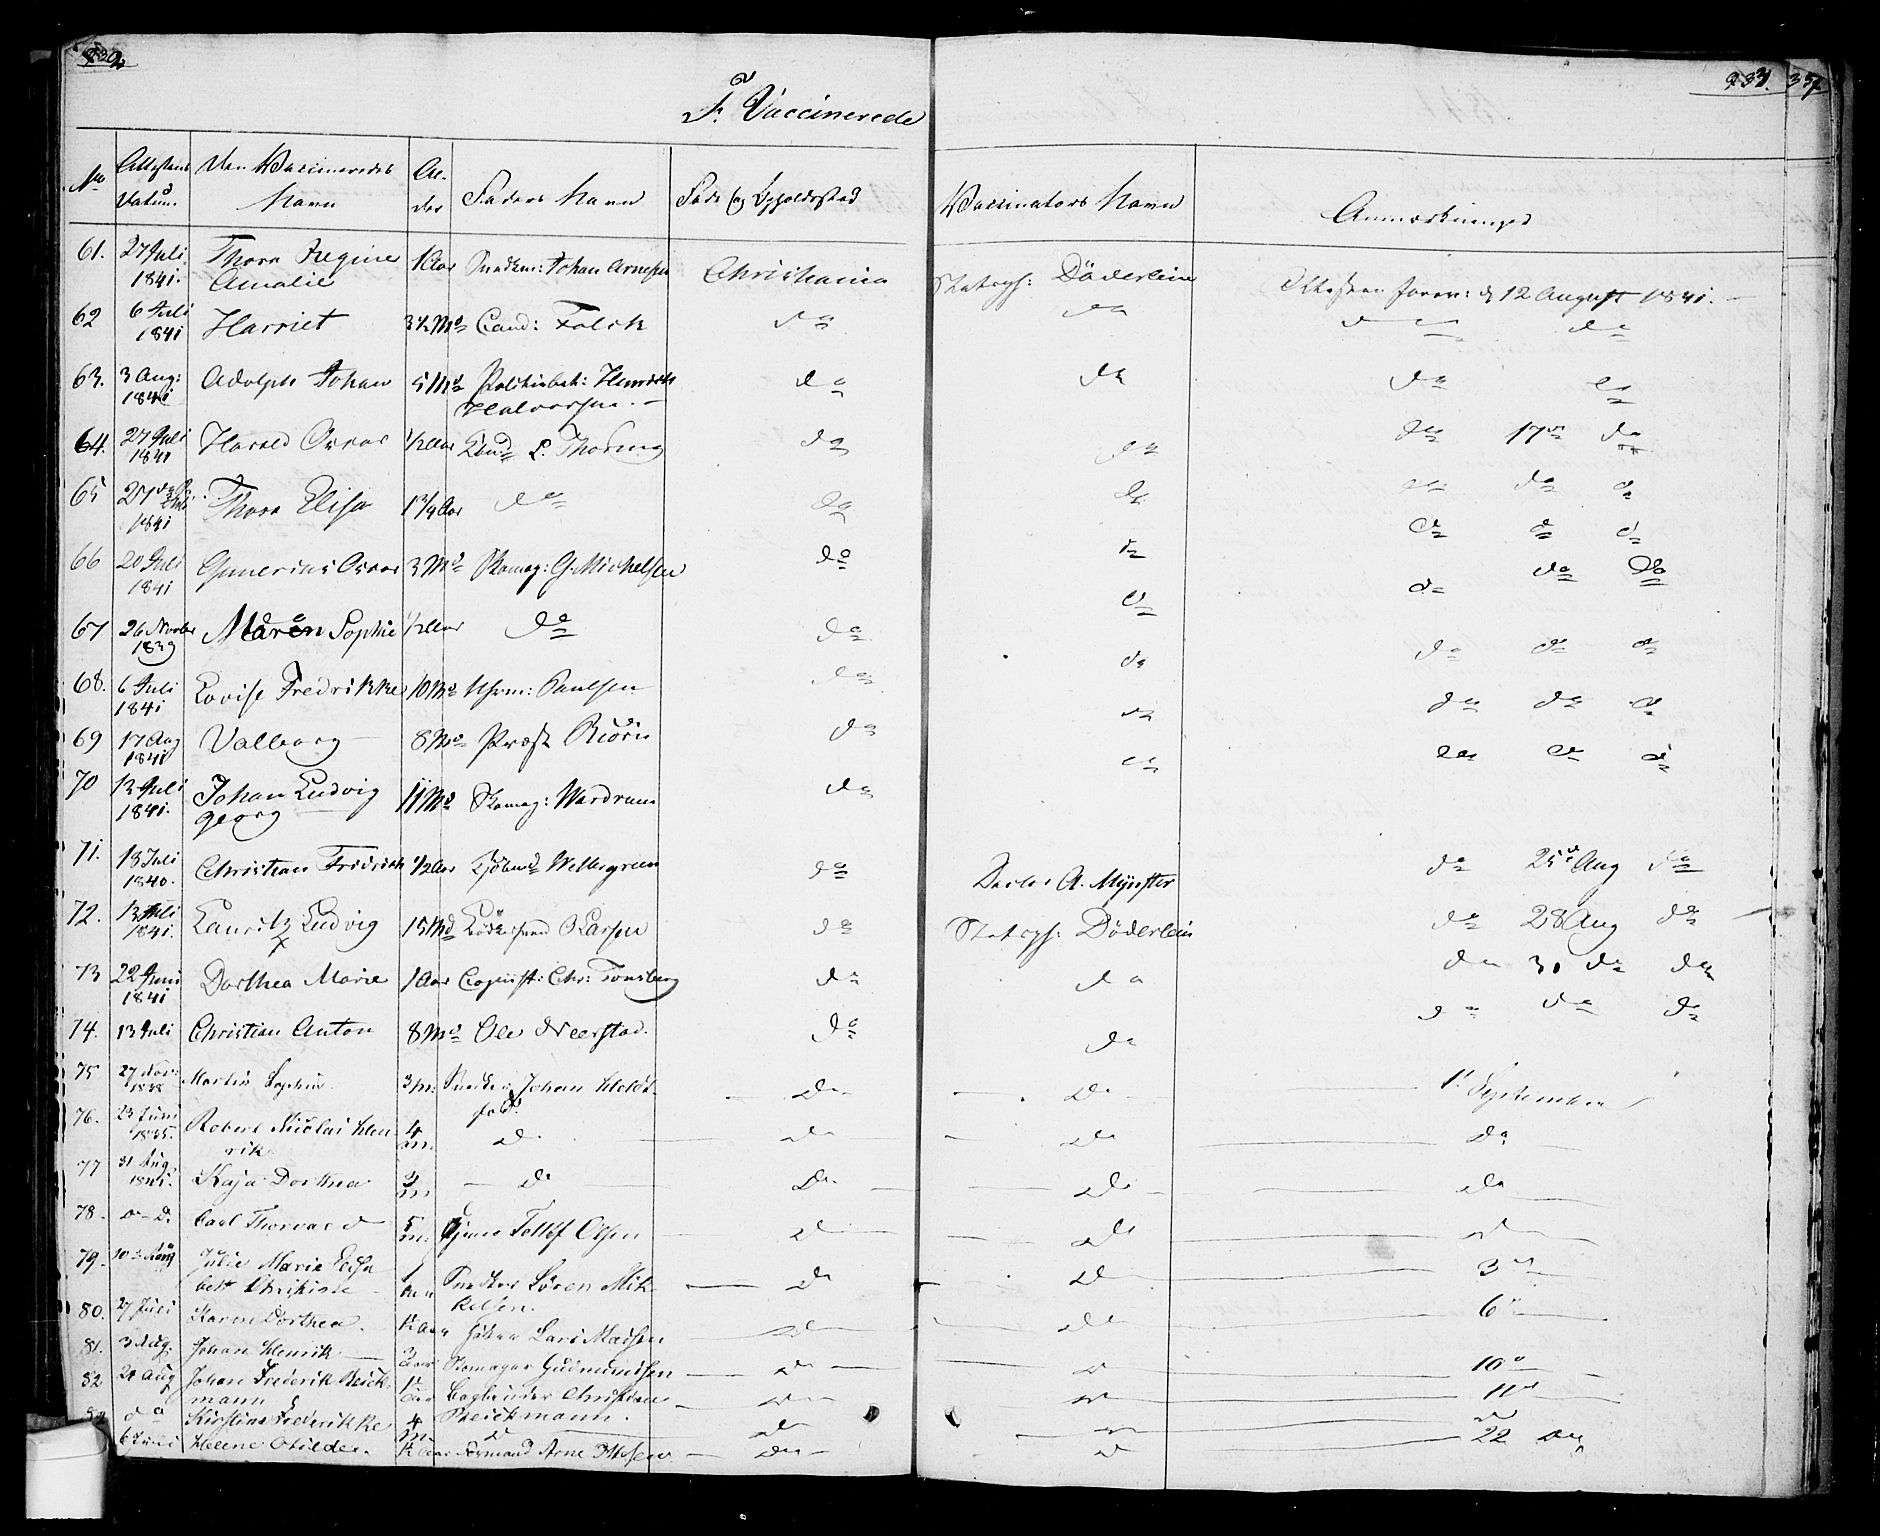 F. Vaccinerede
No Attestens Datum. Den Vaccineredes Navn Al- der Faders Navn Føde og Opholdssted Vaccinators Navn Anmærkninger
61. 27 Juli 1841. Thora Regine Amalie 1 Aar Snedkm: Johan Arnesen Christiania Statsph: Döderlein Attesten forev: d 12 August 1841.
62 6 Juli 1841 Harriet 3½ Md Cand: Folck do do do do
63. 3 Aug: 1841 Adolph Johan 5 Md Politiebet: Henrich Halvorsen. do do do do
64. 27 Juli 1841 Harald Oscar ½ Aar L. Thoring do do do 17de do
65 27de Juli 1841 Thora Elise 1¾ Aar do do do do do do
66 20 Juli 1841 Gunerius Oscar 3 Md Skomag: G. Michelsen do do do do do
67 26 Novbr 1839 Maren Sophie ½ Aar do do do do do do
68. 6 Juli 1841 Lovise Fredrikke 10 Md Paulsen do do do do do
69 17 Aug 1841 Valborg 8 Md Præst Biörn do do do do do
70 13 Juli 1841. Johan Ludvig Georg 11 Md Skomag: Wardrum do do do do do
71. 13 Juli 1840. Christian Fridrich ½ Aar Kjöbmd Wettergreen do A. Mynster do 25de Aug do
72. 13 Juli 1841. Lauritz Ludvig 15 Md Larsen do Statsph: Döderlein do 28 Aug do
73 22 Juni 1841 Dorthea Marie 1 Aar Copiist: Chr: Tonsberg do do do 31 do do
74. 13 Juli Christian Anton 8 Md Ole Neerstad. do do do do do
75 27 Nov: 1838 Martin Sophus 3 m. Snedker Johan Holdt- do do 1ste September
76. 23 Juni 1835. Robert Nicolai Hen- rik 4 m. do do do do
77 31 Aug. 1841. Kaja Dorthea 3 m do do do do
78. do do Carl Thorvald 5 m. Tollef Olsen do do do
79. 10de Aug Julie Marie Elisa- beth Christine 1 Aar Snedker Sören Mik- kelsen. do do 3de
80. 27 Juli Karen Dorthea. Lars Madsen do do 6te
81. 3 Aug. Johan Henrik 3 Aar Skomager Gudmundsen do do 10de
82 24 Aug Johan Frederik Reick- mann Aar Bogbinder Christian Reickmann. do do 11te
do Kirstine Frederikke 4 m. do do do do
6 Juli Helene Otilde. Formand Arne Ottesen do do 22 do